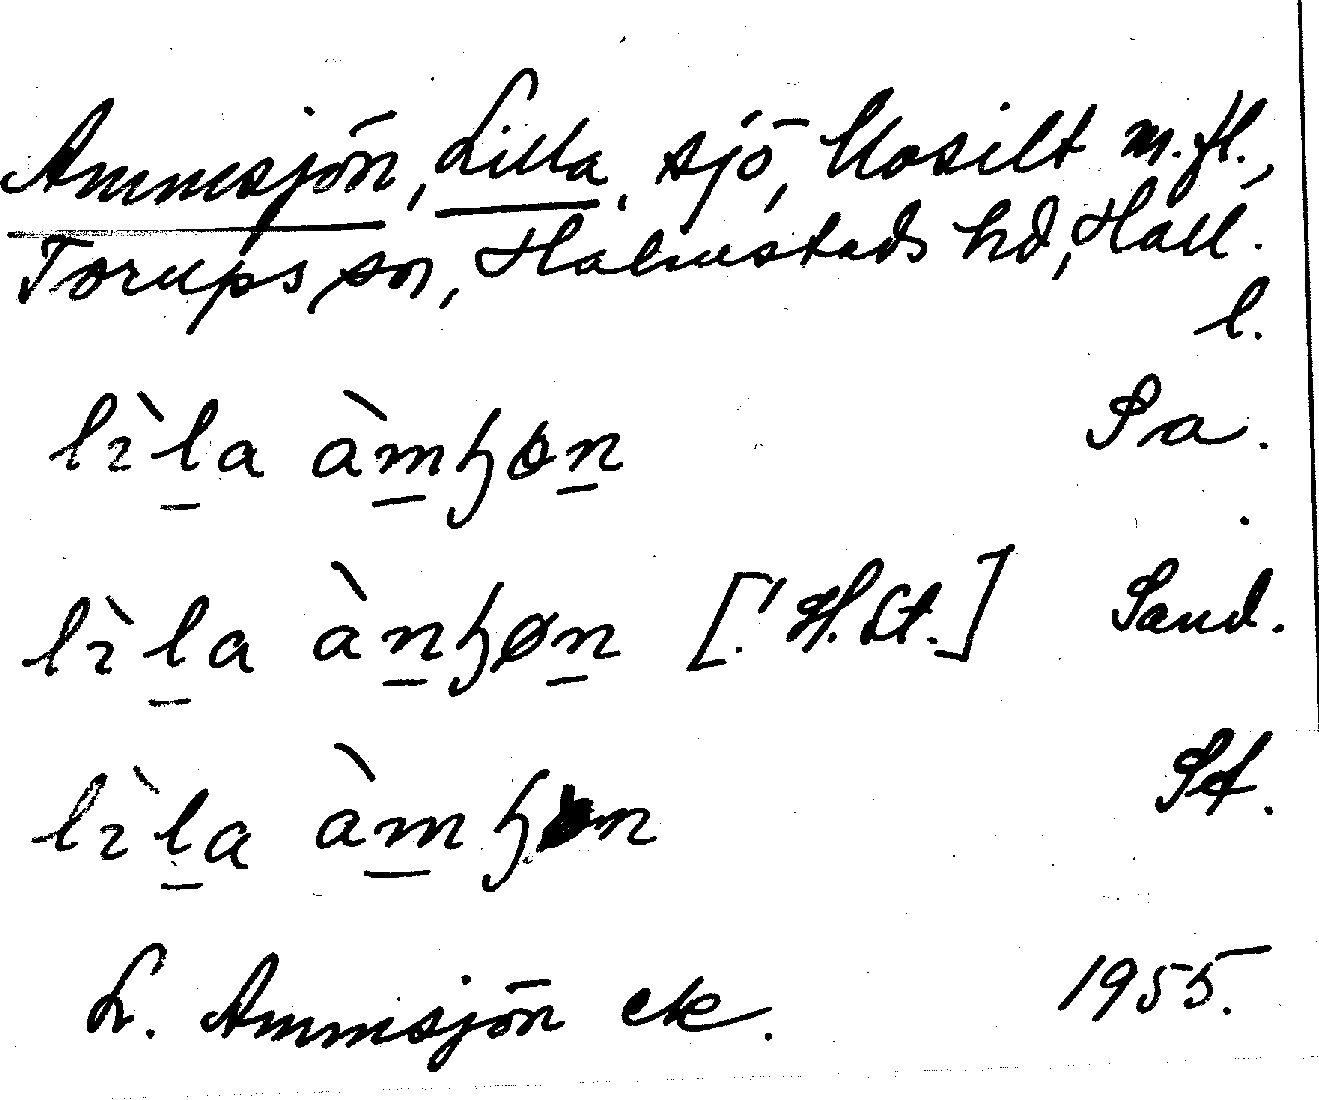 Ammsjön, Lilla, sjö, Mosilt m.fl.,
Torups sn, Halmstads hd, Hall.
l.
lìla àmɧøn Pa.
lìla ànɧøn [! H.Lt.] Sand.
lìla àmɧøn St.
L. Ammsjön ek. 1955.